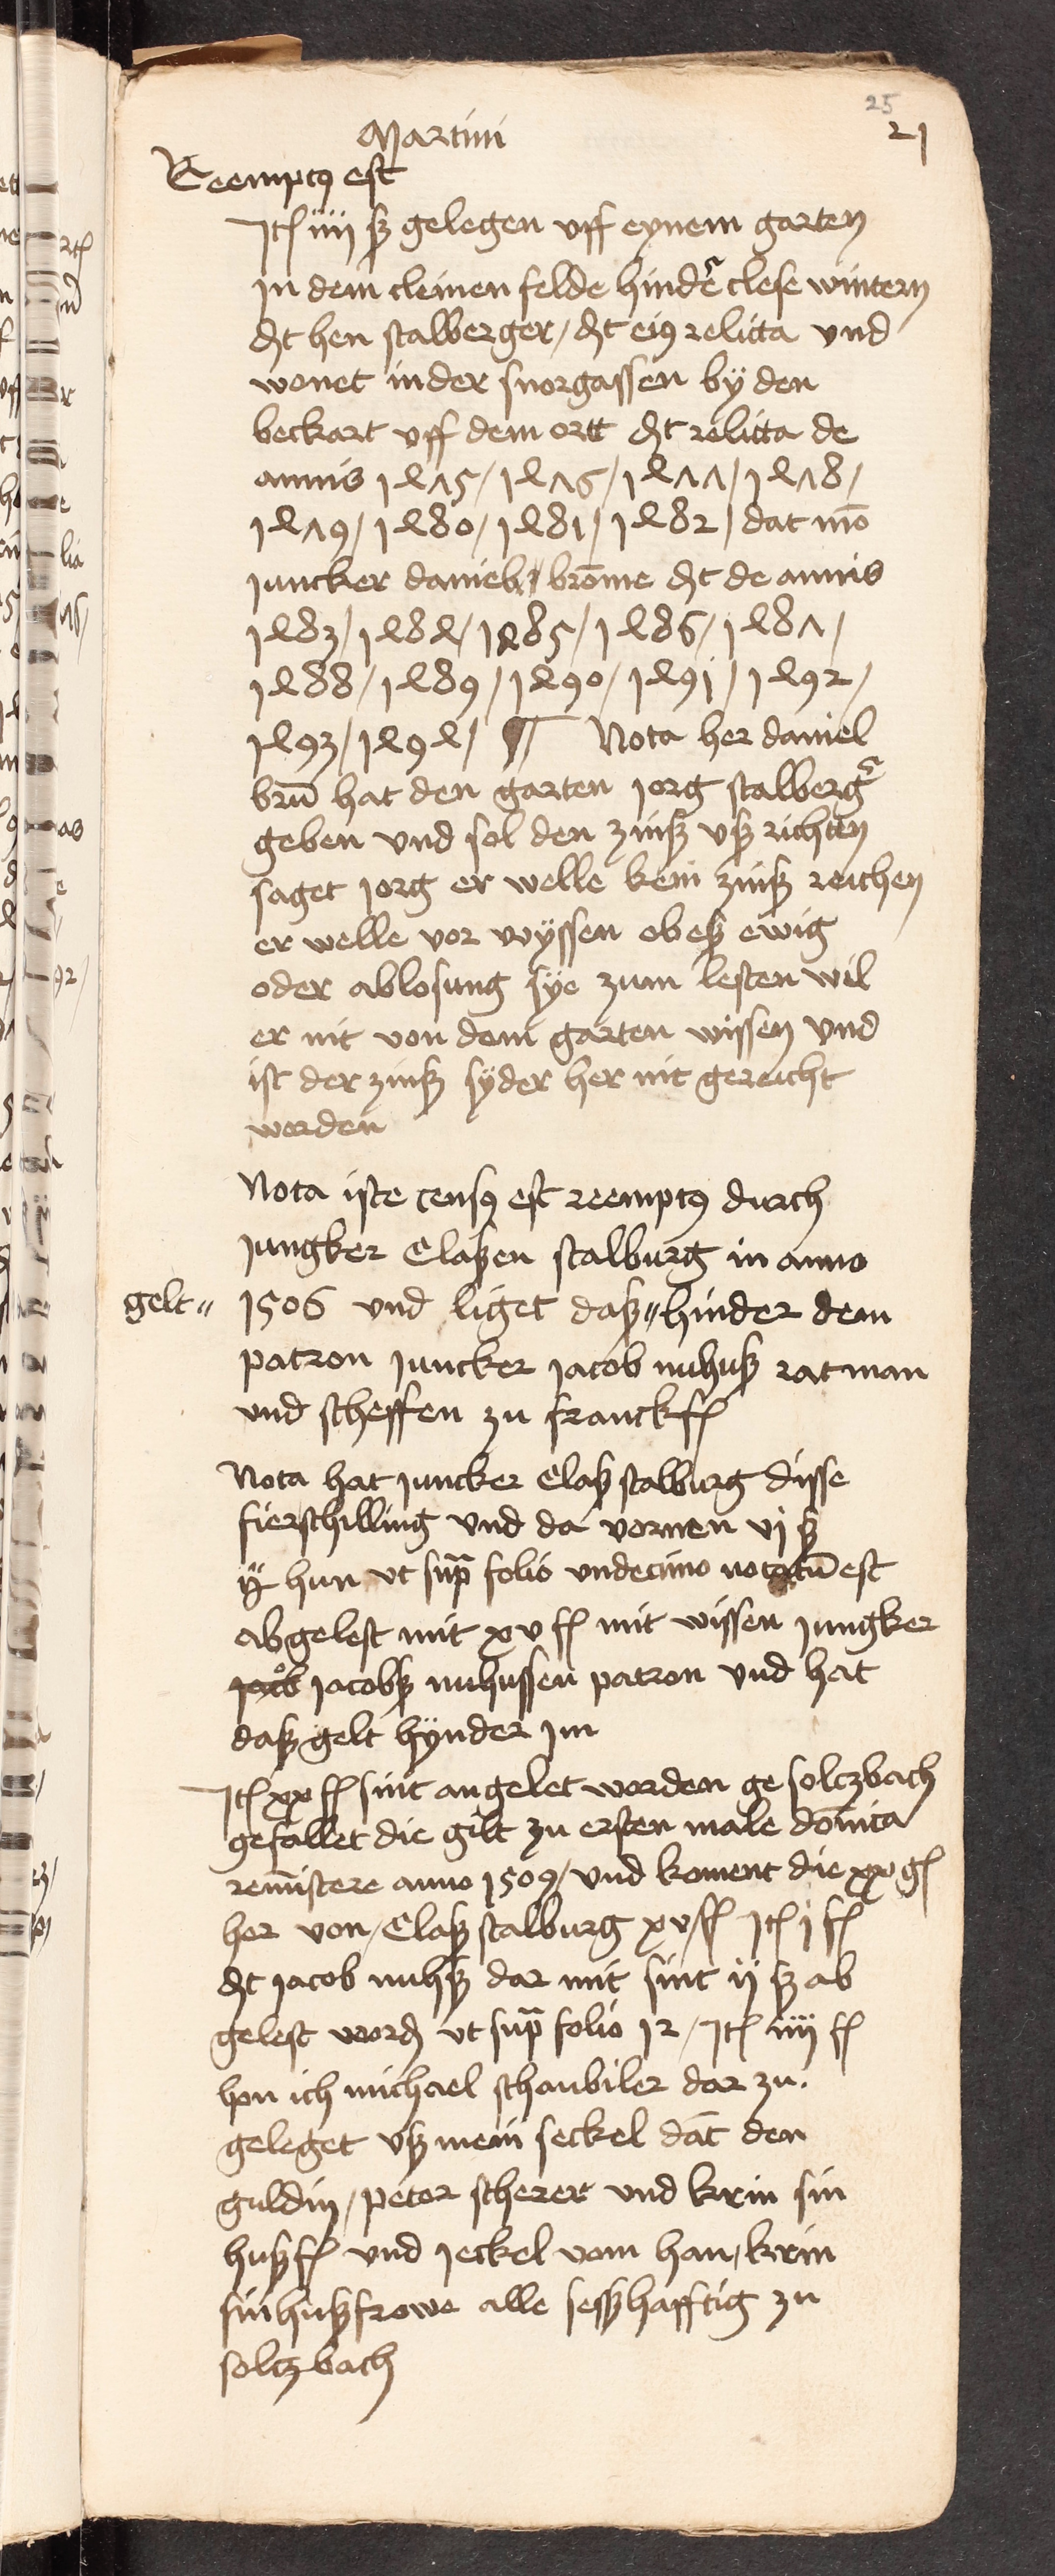 25
21
Martini
Reemptus est
Itê iiij ß gelegen vff eynem garten
in dem cleinen felde hinder clese wintern
dt hen stalberger / dt eius relicta vnd
wonet in der snorgassen by den
beckart vff dem ortt dt relicta de
annis 1475 / 1476 / 1477 / 1478 /
1479 / 1480 / 1481 / 1482 / dat mo
juncker daniel brome dt de annis
1483 / 1484 / 1485 / 1486 / 1487 /
1488 / 1489 / 1490 / 1491 / 1492 /
1493 / 1494 / Nota her daniel
brum hat den garten jorg stalberger
geben vnd sol den zinß vß richten
saget jorg er welle kein zinß reichen
er welle vor wyssen ob eß ewig
oder ablosung sye zum lesten wil
er nit von dem garten wissen vnd
ist der zinß syder her nit gereicht
worden
Nota iste census est reemptus durch
jungker Claßen stalburg in anno
gelt 1506 vnd liget daß hinder dem
patron juncker jacob nuhuß ratman
vnd scheffen zu franckf
Nota hat juncker Claß stalburg disse
fierschilling vnd da vornen vj ß
ij hun vt supra folio vndecimo notatum est
abgelest mit xv fl mit wissen jungker
jacob jacobß nuhussen patron vnd hat
daß gelt hynder jm
Itê xx fl sint angelet worden ge solczbach
gefallet die gilt zu ersten male dominica
reministere anno 1509 / vnd koment die xx gl
her von / Claß stalburg xv fl Itê j fl
dt jacob nuhß dar mit sint ij ß ab
gelest word vt supra folio 12 / Itê iiij fl
hon ich michael schaubiler dar zu
geleget vß mein seckel dat den
guldin / peter scherer vnd krin sin
hußf vnd jeckel vom han / krin
sin hußfrowe alle seßhafftig zu
solczbach